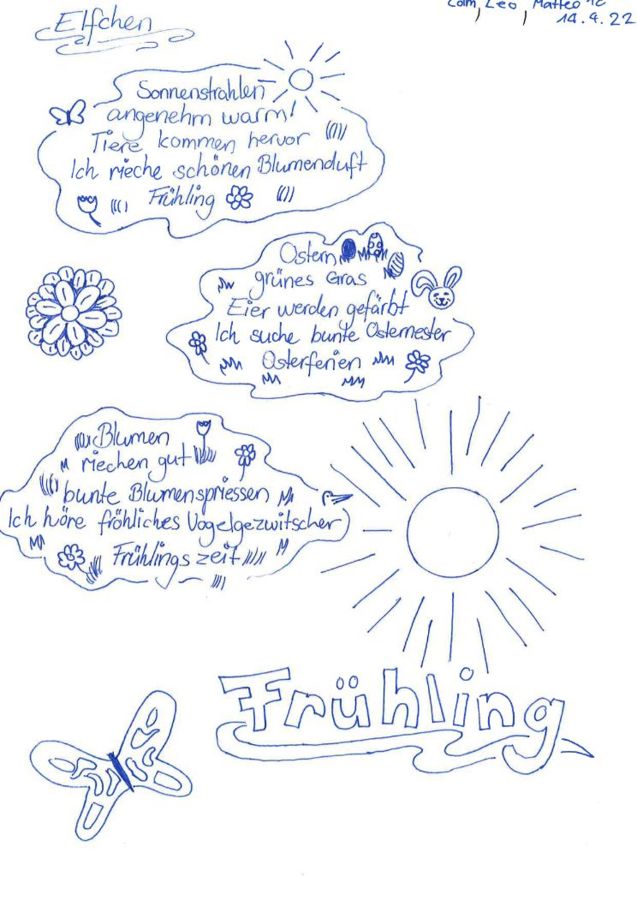 Elfchen
Leo, Matteo
14.4.22
Sonnenstrahlen
angenehm warm!
Tiere kommen hervor
Ich rieche schönen Blumenduft
Frühling
Ostern
grünes Gras
Eier werden gefärbt
Ich suche bunte Osternester
Osterferien
Blumen
riechen gut
bunte Blumenspriessen
Ich höre fröhliches Vogelgezwitscher
Frühlingszeit
Frühling